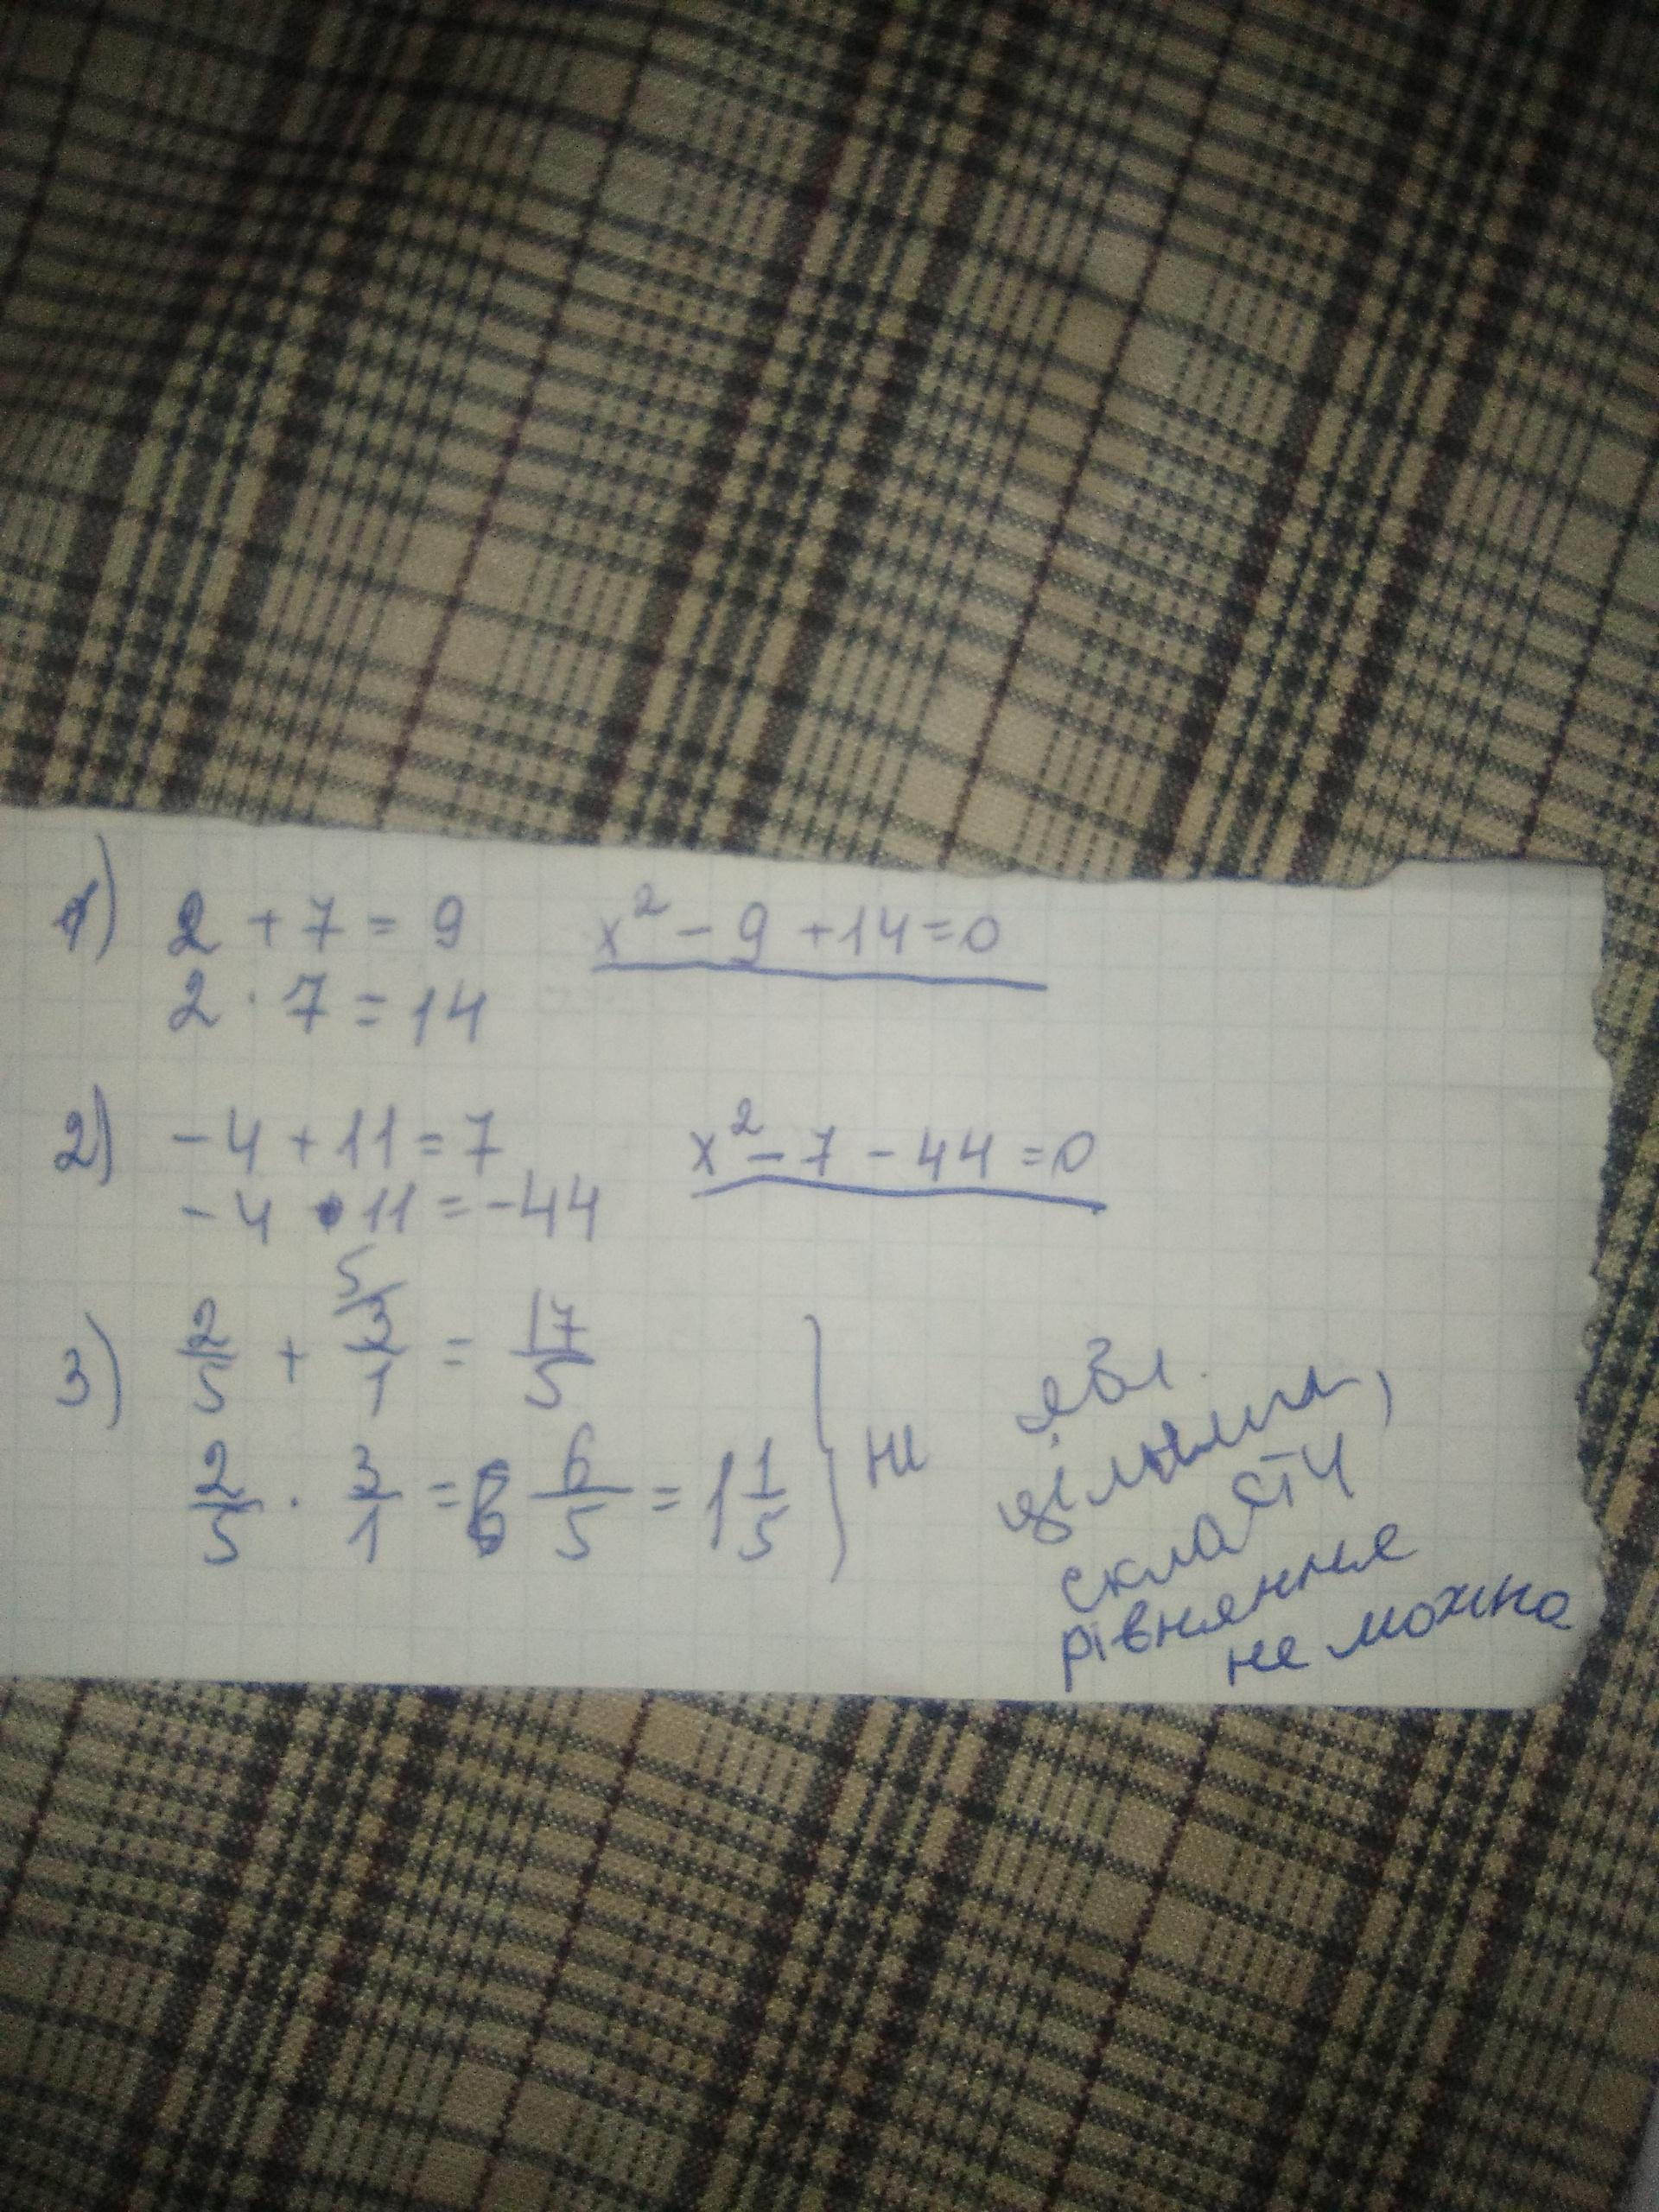 1) 2 + 7 = 9 x² - 9 + 14 = 0
2 · 7 = 14
2) -4 + 11 = 7 x² - 7 - 44 = 0
-4 · 11 = -44
3) 2/5 + 5/ 3/1 = 17/5
2/5 · 3/1 = 6/5 = 1 1/5 } не явл.
цілыми,
скласти
рівняння
не можна